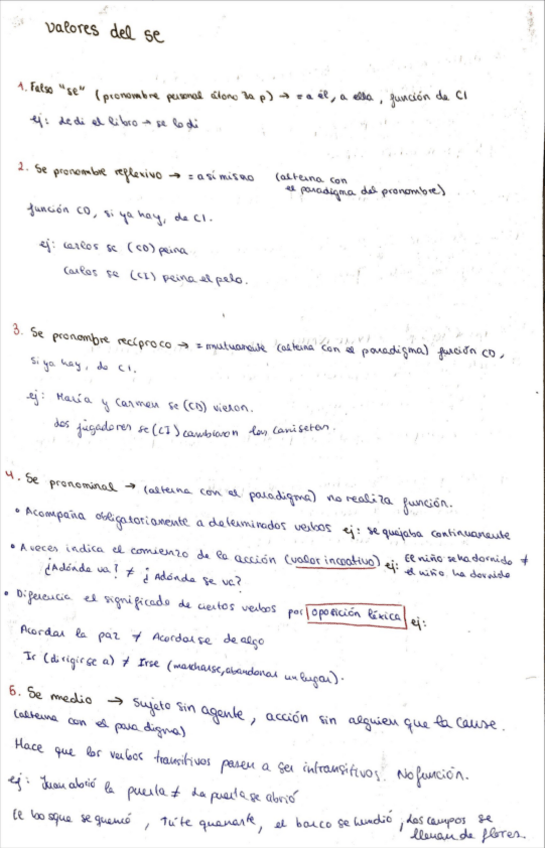 valores del se
1. Falso "se" (pronombre personal átono 3a p) → = a él, a ella, función de CI
ej: le di el libro → se lo di
2. Se pronombre reflexivo → = a sí mismo (alterna con
el paradigma del pronombre)
función CD, si ya hay, de CI.
ej: Carlos se (CD) peina.
Carlos se (CI) peina el pelo.
3. Se pronombre recíproco → = mutuamente (alterna con el paradigma) función CD,
si ya hay, de CI.
ej: María y Carmen se (CD) vieron.
Los jugadores se (CI) cambiaron las camisetas.
4. Se pronominal → (alterna con el paradigma) no realiza función.
• Acompaña obligatoriamente a determinados verbos ej: se quejaba continuamente
• A veces indica el comienzo de la acción (valor incoativo) ej: El niño se ha dormido ≠
¿Adónde va? ≠ ¿Adónde se va? el niño ha dormido
• Diferencia el significado de ciertos verbos por oposición léxica ej:
Acordar la paz ≠ Acordarse de algo
Ir (dirigirse a) ≠ Irse (marcharse, abandonar un lugar).
5. Se medio → Sujeto sin agente, acción sin alguien que la cause.
(alterna con el paradigma)
Hace que los verbos transitivos pasen a ser intransitivos. No función.
ej: Juan abrió la puerta ≠ La puerta se abrió
El bosque se quemó, Tú te quemaste, el barco se hundió, Los campos se
llenan de flores.